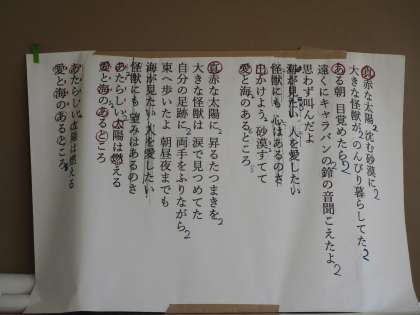 真赤な太陽に 沈む砂漠に
大きな怪獣が のんびり暮らしてた
ある朝 目覚めたら
遠くにキャラバンの鈴の音聞こえたよ
思わず叫んだよ
海が見たい 人を愛したい
怪獣にも 心はあるのさ
出かけよう 砂漠すてて
愛と海のあるところ
真赤な太陽に 昇るたつまきを
大きな怪獣は 涙で見つめてた
自分の足跡に 両手をふりながら
東へ歩いたよ 朝昼夜までも
海が見たい 人を愛したい
怪獣にも 望みはあるのさ
あたらしい 太陽は燃える
愛と海のあるところ
あたらしい 太陽は燃える
愛と海のあるところ